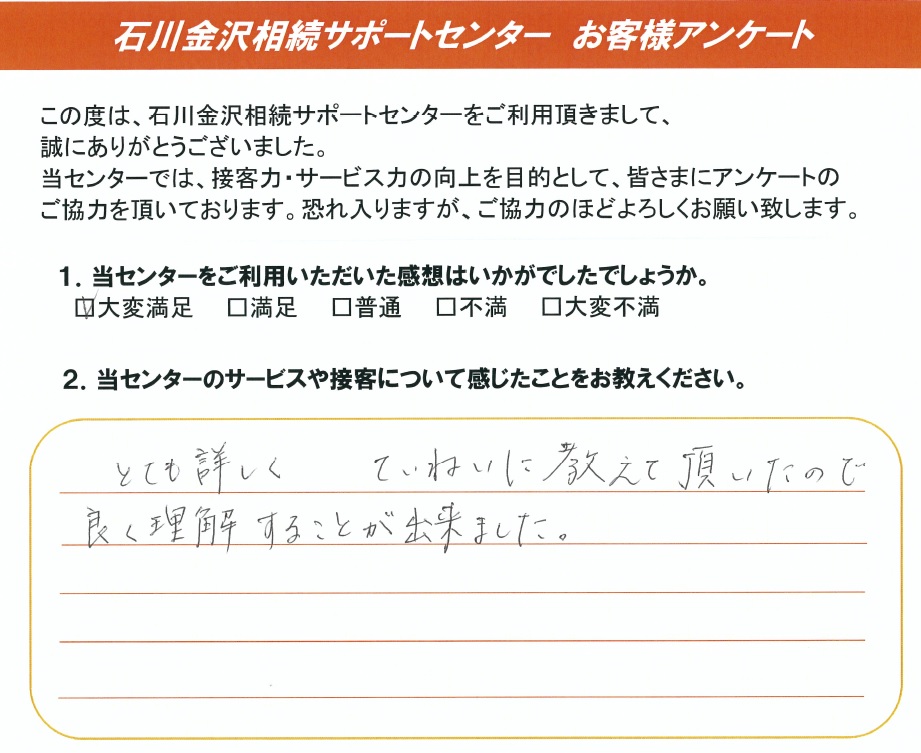 石川金沢相続サポートセンター お客様アンケート
この度は、石川金沢相続サポートセンターをご利用頂きまして、
誠にありがとうございました。
当センターでは、接客力・サービス力の向上を目的として、皆さまにアンケートの
ご協力を頂いております。恐れ入りますが、ご協力のほどよろしくお願い致します。
1. 当センターをご利用いただいた感想はいかがでしたでしょうか。
☑大変満足 □満足 □普通 □不満 □大変不満
2. 当センターのサービスや接客について感じたことをお教えください。
とても詳しく ていねいに教えて頂いたので
良く理解することが出来ました。